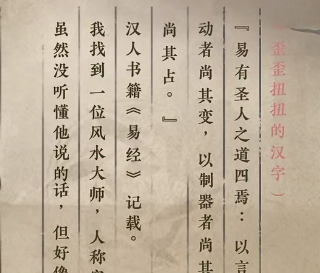 歪歪扭扭的汉字）
『易有圣人之道四焉：以言
动者尚其变，以制器者尚其
尚其占。』
汉人书籍《易经》记载。
我找到一位风水大师，人称
虽然没听懂他说的话，但好像